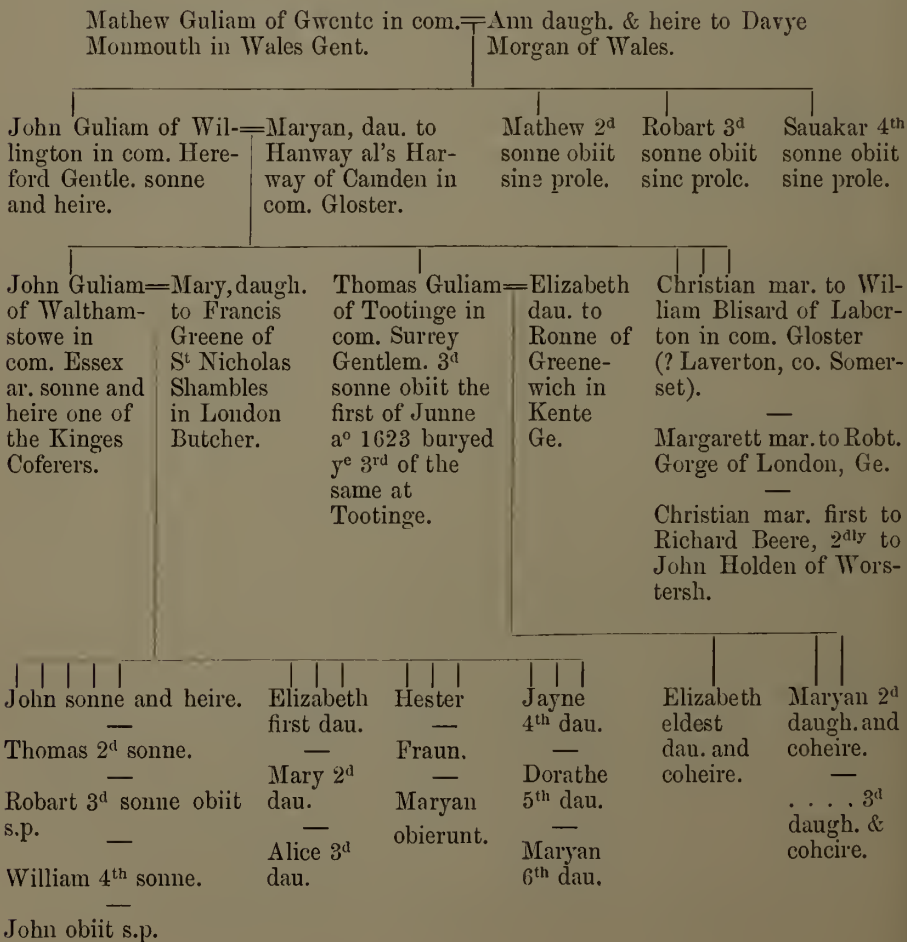 Mathew Guliam of Gwente in com.=Ann daugh. & heire to Davye
Monmouth in Wales Gent. Morgan of Wales.
John Guliam of Wil-=Maryan, dau. to
lington in com. Here- Hanway al's Har-
ford Gentle. sonne way of Camden in
and heire. com. Gloster.
Mathew 2d
sonne obiit
sine prole.
Robart 3d
sonne obiit
sine prole.
Sauakar 4th
sonne obiit
sine prole.
John Guliam=
of Waltham-
stowe in
com. Essex
ar. sonne and
heire one of
the Kinges
Coferers.
Mary, daugh.
to Francis
Greene of
St Nicholas
Shambles
in London
Butcher.
Thomas Guliam=
of Tootinge in
com. Surrey
Gentlem. 3d
sonne obiit the
first of Junne
ao 1623 buryed
ye 3rd of the
same at
Tootinge.
Elizabeth
dau. to
Ronne of
Greene-
wich in
Kente
Ge.
Christian mar. to Wil-
liam Blisard of Laber-
ton in com. Gloster
(? Laverton, co. Somer-
set).
—
Margarett mar. to Robt.
Gorge of London, Ge.
—
Christian mar. first to
Richard Beere, 2dly to
John Holden of Wors-
tersh.
John sonne and heire.
—
Thomas 2d sonne.
—
Robart 3d sonne obiit
s.p.
—
William 4th sonne.
—
John obiit s.p.
Elizabeth
first dau.
—
Mary 2d
dau.
—
Alice 3d
dau.
Hester
—
Fraun.
—
Maryan
obierunt.
Jayne
4th dau.
—
Dorathe
5th dau.
—
Maryan
6th dau.
Elizabeth
eldest
dau. and
coheire.
Maryan 2d
daugh. and
coheire.
—
. . . . 3d
daugh. &
coheire.